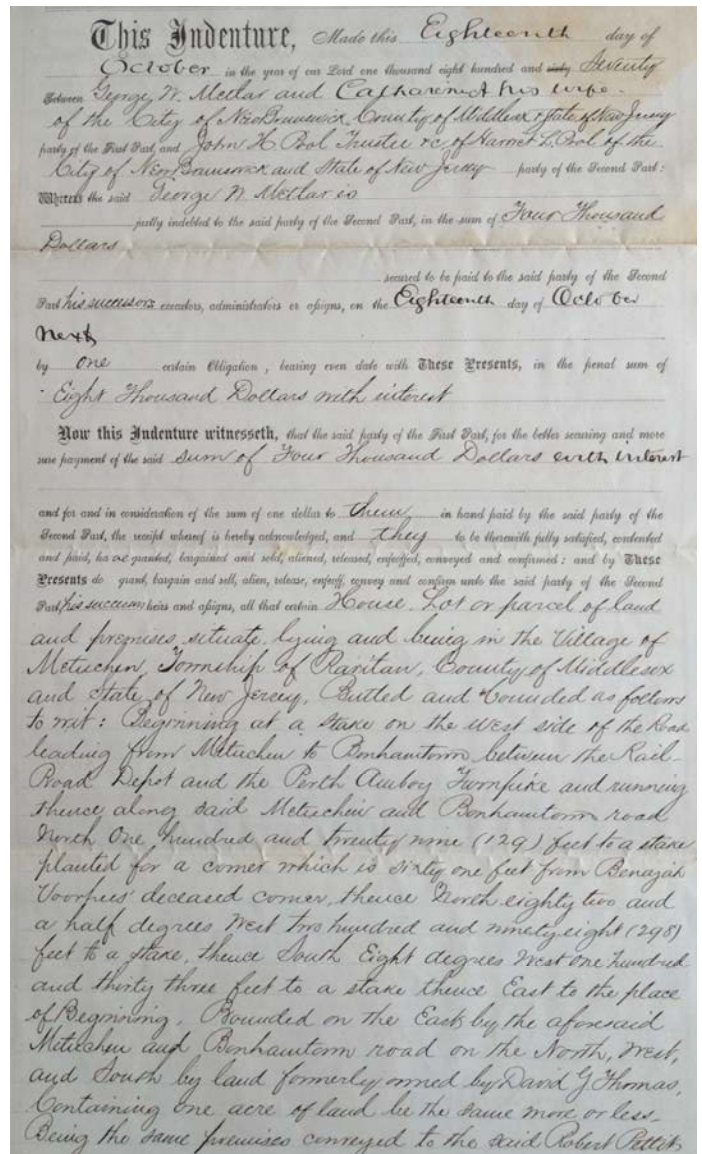 This Indenture, Made this Eighteenth day of
October in the year of our Lord one thousand eight hundred and sixty Seventy
Between George W. Metlar and Catharine his wife.
of the City of New Brunswick County of Middlesex & State of New Jersey
party of the First Part, and John H Pool Trustee &c of Harriet L. Pool of the
City of New Brunswick and State of New Jersey party of the Second Part:
Whereas the said George W. Metlar is
justly indebted to the said party of the Second Part, in the sum of Four Thousand
Dollars
secured to be paid to the said party of the Second
Part his successors executors, administrators or assigns, on the Eighteenth day of October
Next
by one certain Obligation, bearing even date with These Presents, in the penal sum of
Eight Thousand Dollars with interest
Now this Indenture witnesseth, that the said party of the First Part, for the better securing and more
sure payment of the said sum of Four Thousand Dollars with interest
and for and in consideration of the sum of one dollar to them in hand paid by the said party of the
Second Part, the receipt whereof is hereby acknowledged, and they to be therewith fully satisfied, contented
and paid, have granted, bargained and sold, aliened, released, enfeoffed, conveyed and confirmed: and by These
Presents do grant, bargain and sell, alien, release, enfeoff, convey and confirm unto the said party of the Second
Part, his successors heirs and assigns, all that certain House, Lot or parcel of land
and premises, situate, lying and being in the Village of
Metuchen, Township of Raritan, County of Middlesex
and State of New Jersey, Butted and bounded as follows
to wit: Beginning at a stake on the west side of the Road
leading from Metuchen to Bonhamtown between the Rail-
Road Depot and the Perth Amboy Turnpike and running
thence along said Metuchen and Bonhamtown road
North One hundred and twenty nine (129) feet to a stake
planted for a corner which is sixty one feet from Benajah
Voorhees' deceased corner, thence North eighty two and
a half degrees West two hundred and ninety eight (298)
feet to a stake, thence South Eight degrees West one hundred
and thirty three feet to a stake thence East to the place
of Beginning. Bounded on the East by the aforesaid
Metuchen and Bonhamtown road on the North, West,
and South by land formerly owned by David G Thomas,
Containing one acre of land be the same more or less.
Being the same premises conveyed to the said Robert Pettit